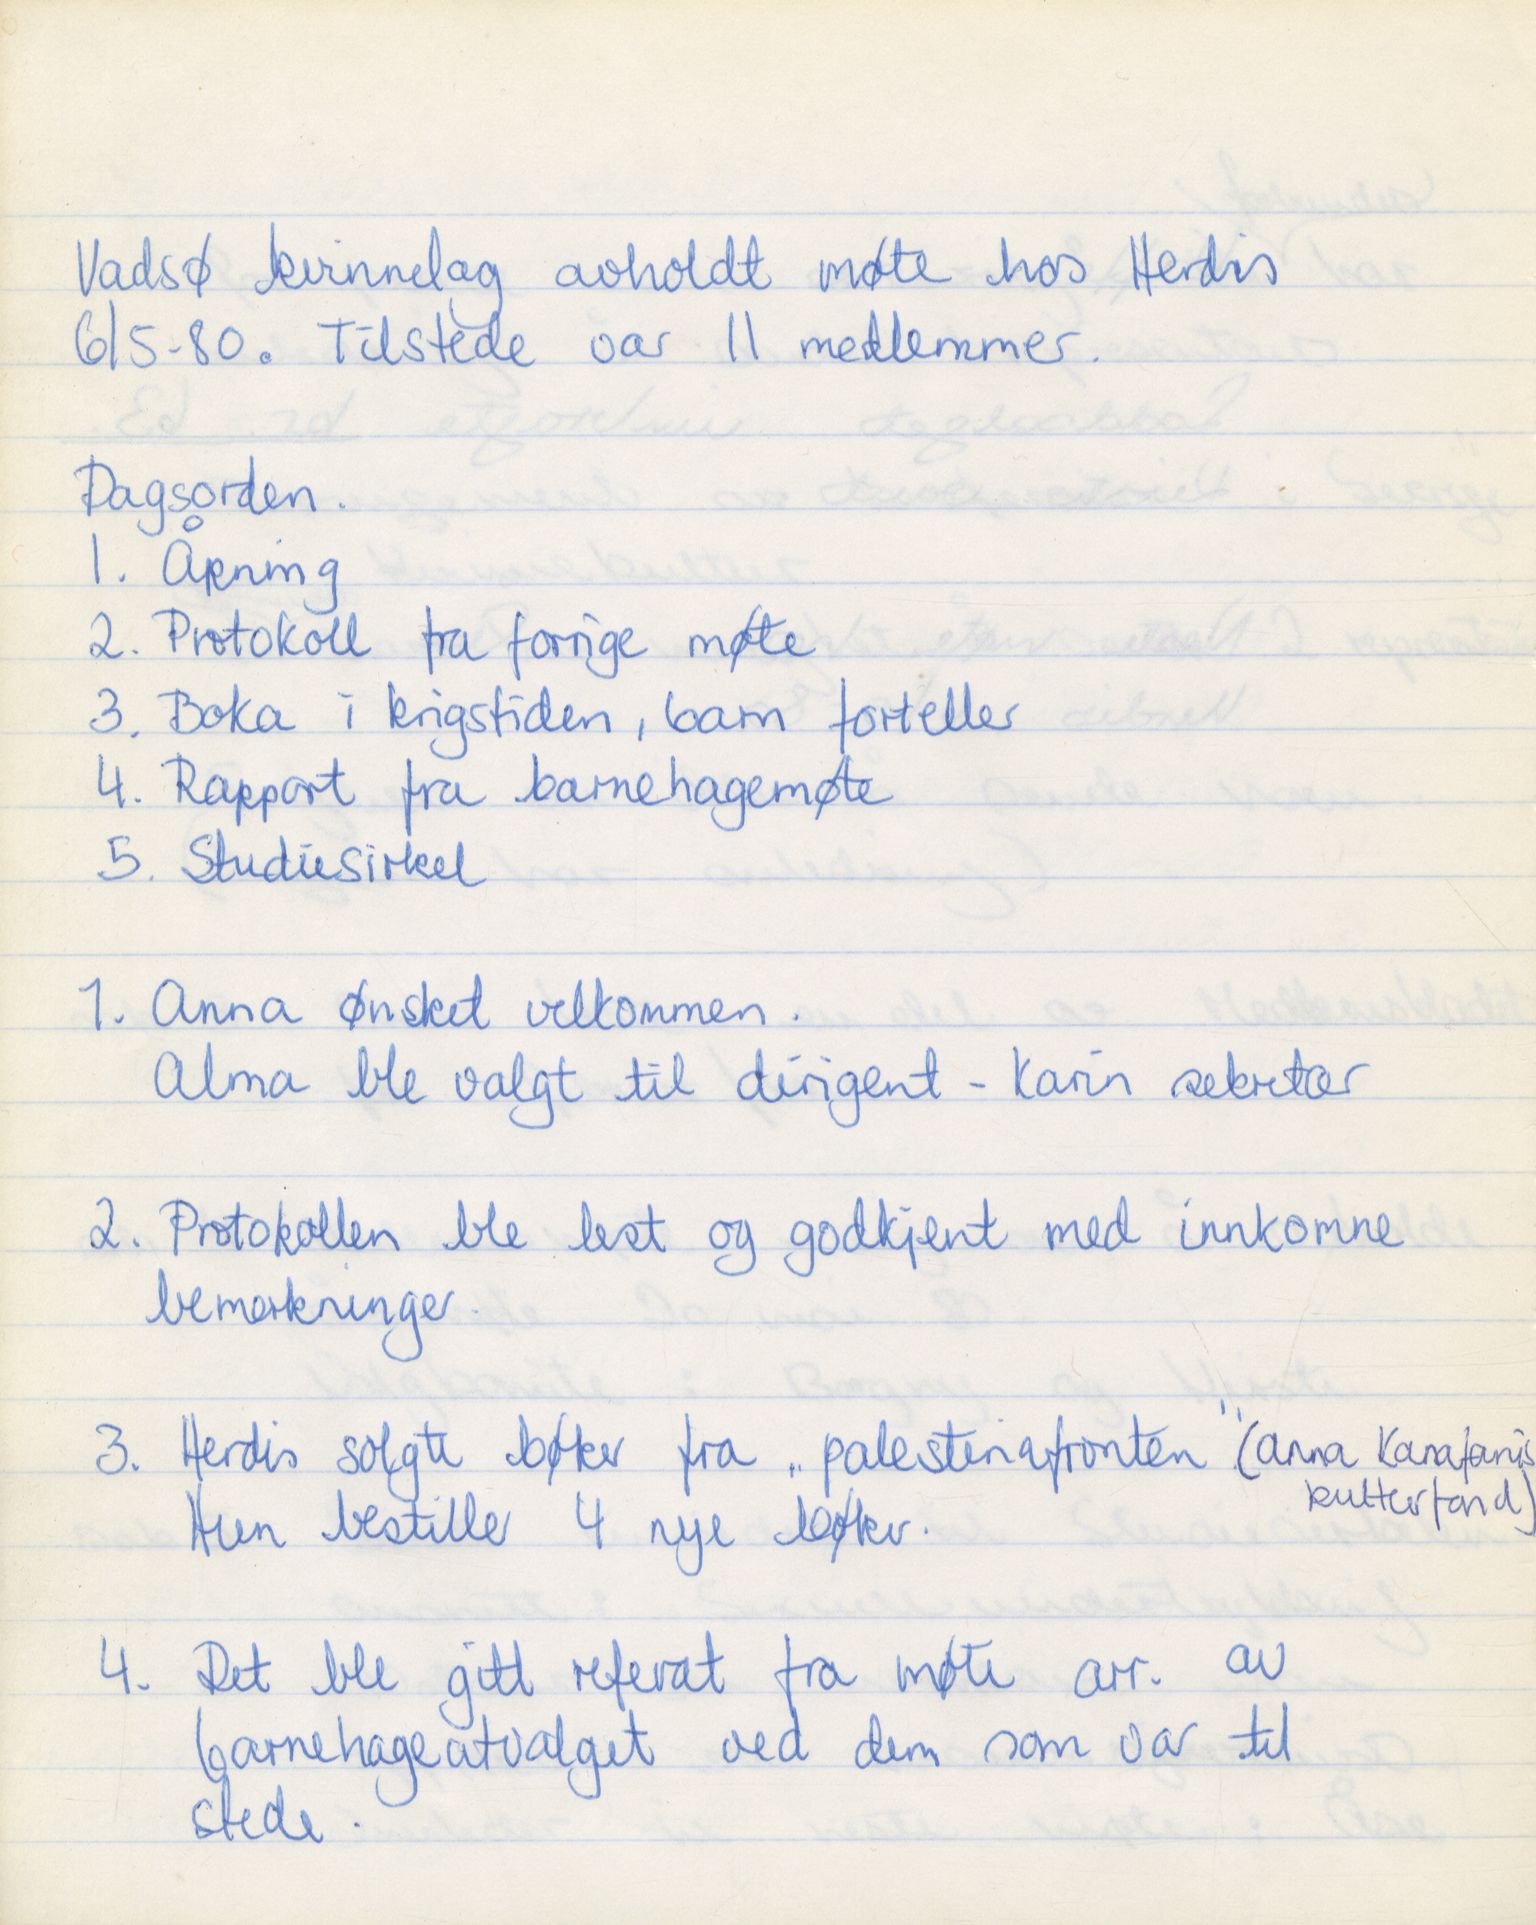 Vadsø kvinnelag avholdt møte hos Herdis
6/5-80. Tilstede var 11 medlemmer.
Dagsorden.
1. Åpning
2. Protokoll fra forrige møte
3. Boka i krigstiden, barn forteller
4. Rapport fra barnehagemøte
5. Studiesirkel
1. Anna ønsket velkommen.
Alma ble valgt til dirigent - Karin sekretær
2. Protokollen ble lest og godkjent med innkomne
bemerkninger.
3. Herdis solgte bøker fra „palestinafronten" (Anna Kanafanis
kulturfond)
Hun bestiller 4 nye bøker.
4. Det ble gitt referat fra møte arr. av
barnehageutvalget ved dem som var til
stede.